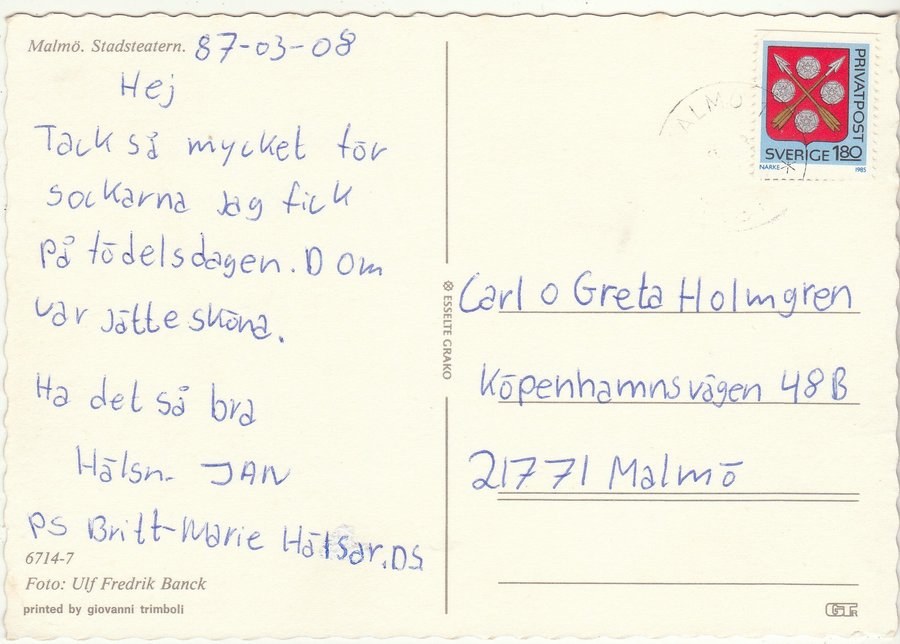 Malmö. Stadsteatern. 87-03-08
Hej
Tack så mycket för
sockarna jag fick
på födelsdagen. Dom
var jätte sköna.
Ha det så bra
Hälsn. JAN
PS Britt-Marie Hälsar. DS
6714-7
Foto: Ulf Fredrik Banck
printed by giovanni trimboli
ESSELTE GRAKO
MALMÖ
PRIVATPOST
SVERIGE 180
NÄRKE 1985
Carl o Greta Holmgren
Köpenhamnsvägen 48B
21771 Malmö